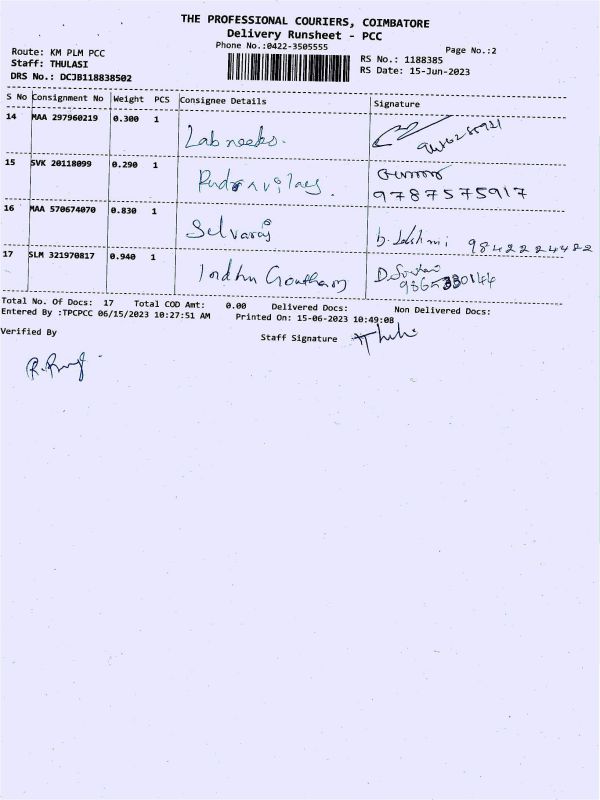 THE PROFESSIONAL COURIERS, COIMBATORE
Delivery Runsheet - PCC
Phone No.:0422-3505555
Page No.:2
Route: KM PLM PCC
RS No.: 1188385
Staff: THULASI
RS Date: 15-Jun-2023
DRS No.: DCJB118838502
S No Consignment No Weight PCS Consignee Details Signature
14 MAA 297960219 0.300 1 Lab needs.
15 SVK 20118099 0.290 1
9787575917
16 MAA 570674070 0.830 1 Selvaraj b. Lakshmi 9842224422
17 SLM 321970817 0.940 1 Indhu Goutham
Total No. Of Docs: 17 Total COD Amt: 0.00 Delivered Docs: Non Delivered Docs:
Entered By :TPCPCC 06/15/2023 10:27:51 AM Printed On: 15-06-2023 10:49:08
Verified By
Staff Signature